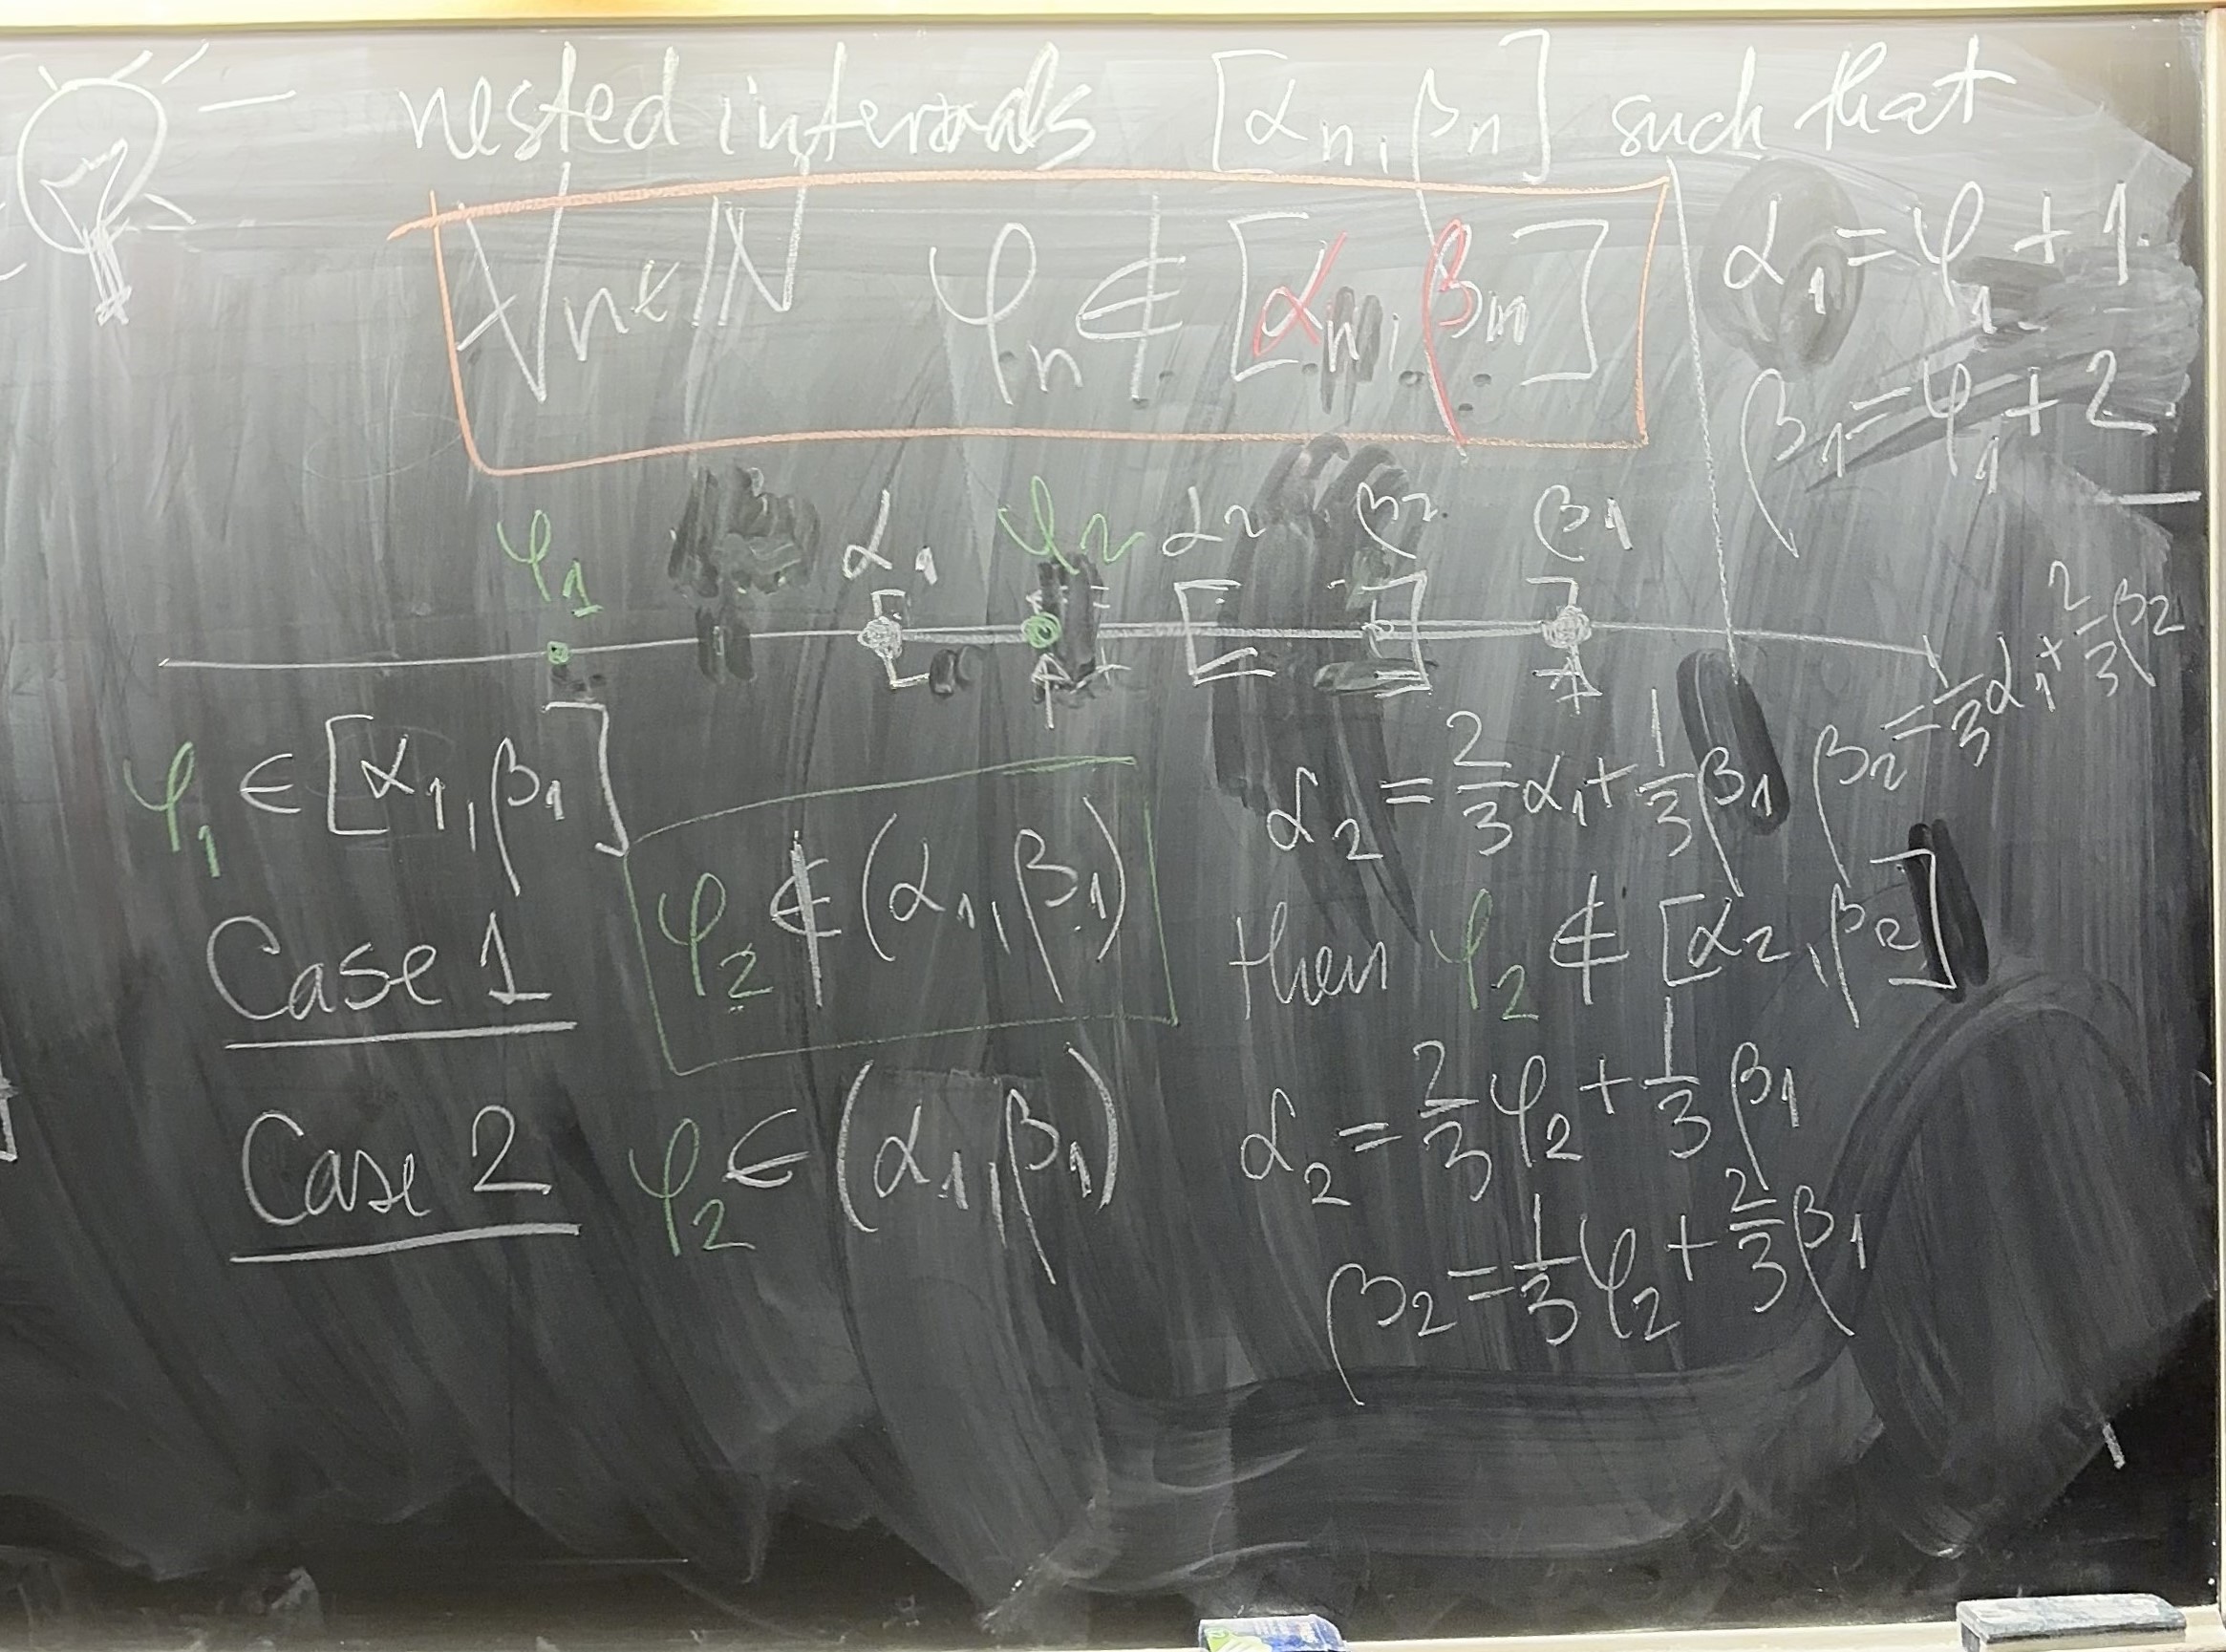 — nested intervals [αn, βn] such that
∀n∈ℕ φn ∉ [αn, βn]
α1 = φ1 + 1
β1 = φ1 + 2
φ1 α1 φ2 α2 β2 β1
φ1 ∈ [α1, β1]
α2 = 2/3 α1 + 1/3 β1 β2 = 1/3 α1 + 2/3 β2
Case 1 φ2 ∉ (α1, β1) then φ2 ∉ [α2, β2]
Case 2 φ2 ∈ (α1, β1) α2 = 2/3 φ2 + 1/3 β1
β2 = 1/3 φ2 + 2/3 β1